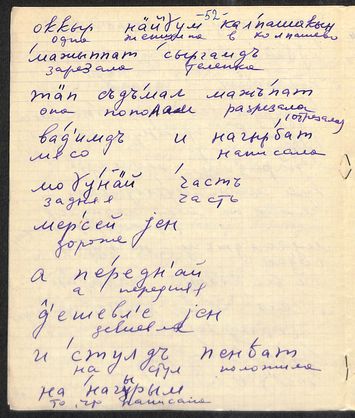 -52-
оккыр нӓйӷум калпашакын
одна женщина в колпашево
мажыппат сыргамдъ
зарезала теленка
тӓп съдъмал мажъпат
она пополам разрезала (отрезала)
вад'имдъ и нагырбат
мясо написала
моӷунӓй част'ъ
задняя часть
мерсей јен
дороже
а передн'ай
а передняя
д'ешевл'е јен
дешевле
и стулдъ пенбат
на стул положила
на нагурым
то, что написала